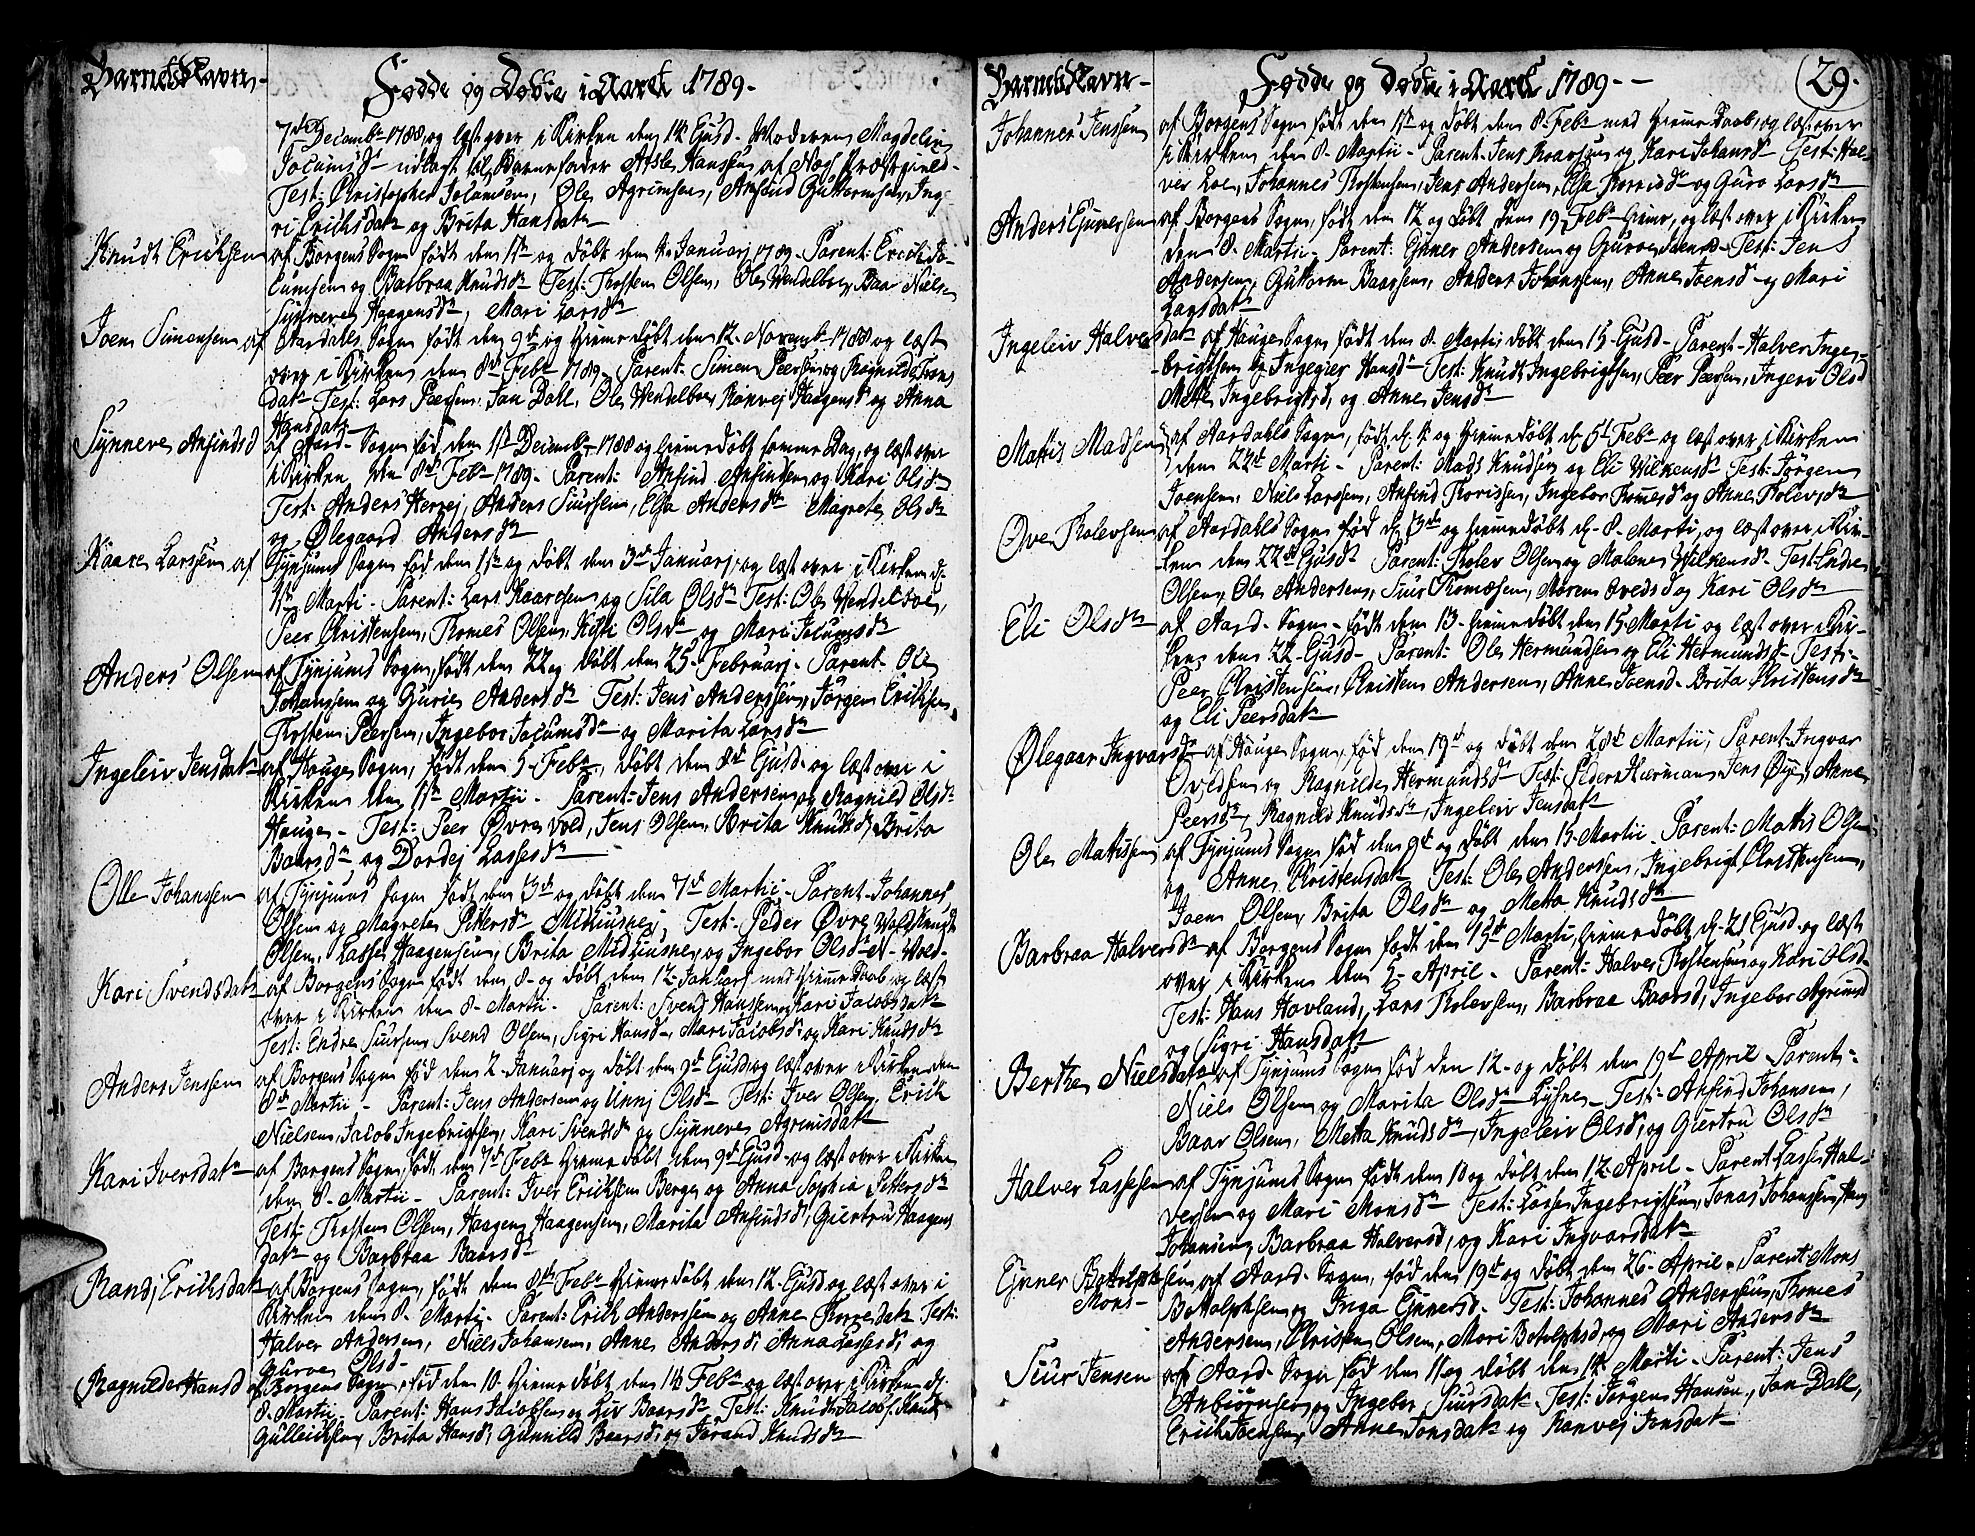 Barnets Navn-
Fødde og Døbte i Aaret 1789-
7de Decembr 1788, og læst over i Kirken den 14 Ejusd. Moderen Magdelin
Joensd udlagt til Barnefader Atsle Hansen af Næs Præstegield-
Test: Christopher Joensen, Ole Agrimsen, Anfind Guttormsen, Ing-
ri Erichsdatr og Brita Hansdatr
Knudt Erichsen
af Borgens Sogn født den 1ste og døbt den 4 Januarj 1789. Parent: Erich Jo-
and og Barbraa Knudsdr Test: Thosten Olsen, Ole Wendelboe, Baar Niels
Synneve Haagensdr, Mari Larsdr
Joen Simensen af
Aardahls Sogn født den 9de og hiemmedøbt den 12 Novembr 1788 og læst
over i Kirken den 8de Febr 1789. Parent: Simen Peersen og Ragnilda Jens
datr Test: Lars Peersen, Jan Dahl, Ole Wendelboe, Ranvej Haagensdr og Anna
Hansdatr
Synneve Anfindsd
af Aard. Sogn fød den 1ste Decembr 1788 og hiemmedøbt samme Dag, og læst over
i Kirken den 8de Febr 1789. Parent: Anfind Anfindsen og Kari Olsdr
Test: Anders Herrej, Anders Siursen, Elsa Andersdr Magrete Olsdr
og Ølegaard Andersdr
Kaare Larssen af
Tynjums Sogn fød den 1ste og døbt den 3de Januarj, og læst over i Kirken d.
1ste Marti- Parent: Lars Kaaresen og Sila Olsdr Test: Ole Wendelboe,
Peer Christensen, Thomes Olsen, Kisti Olsdr og Mari Joensdr
Anders Olsen
af Tynjums Sogn, født den 22 og døbt den 25 Februarj- Parent- Ole
Johansen og Gurie Andersdr Test: Jens Andersen, Jørgen Erichsen,
Thosten Peersen, Ingebor Joensdr og Marita Larsdr
Ingeleiv Jensdatr
af Hauge Sogn, født den 5 Febr, døbt den 8de Ejusd- og læst over i
Kirken den 1ste Martii- Parent: Jens Andersen og Ragnild Olsdr
Hauge- Test: Peer Øvrevold, Jens Olsen, Brita Knudsd, Brita
Baarsdr og Dordej Lassesdr
Olle Johansen
af Tynjums Sogn født den 3de og døbt den 7de Martii- Parent: Johannes
Olsen og Magrete Pettersdr Midtiusnej, Test: Peder Øvre Vold Knudt
Olsen, Lasse Haagensen, Brita Midtiusnes og Ingebor Olsdr Vold-
Kari Svendsdatr
af Borgens Sogn født den 8. og døbt den 12 Januarj med hiemmedaab, og læst
over i Kirken den 8. Martii- Parent: Svend Hanssen og Kari Jacobsdatr
Test: Endre Siursen, Svend Olsen, Sigri Hansdr, Mari Jacobsd, og Kari Knudsdr
Anders Jenssen
af Borgens Sogn fød den 2 Januarj og døbt den 9de Ejusd, og læst over i Kirken den
8de Martii- Parent: Jens Andersen og Unni Olsdr Test: Iver Olsen, Erich
Nielsen, Jacob Ingebrigtsen, Kari Svendsdr og Synneve Agrimsdatr
Kari Iversdatr
af Borgens Sogn, født den 7de Febr hiemmedøbt den 9de Ejusd- og læst over i Kirken
den 8. Martii- Parent: Iver Erichsen Berge og Anna Sophia Pettersdr
Test: Thosten Olsen, Haagen Haagensen, Marita Anfindsdr, Giertru Haagens
datr og Barbraa Baarsdr
Randi Erichsdatr
af Borgens Sogn, født den 8de Febr hiemmedøbt den 12. Ejusd og læst over i
Kirken den 8. Marti. Parent: Erich Anderssen og Anne Siursdatr Test:
Halver Andersen, Niels Johansen, Anne Andersd, Anna Lassesd, og
Gurve Olsd-
Ragnilde Hansd
af Borgens Sogn, fød den 10. hiemmedøbt den 14 Febr og læst over i Kirken d.
8. Martii. Parent: Hans Jacobsen og Liv Baarsdr Test: Knudt Jacobs. Knudt
Gulleichsen, Brita Hansd, Gunnild Baarsd, og Jorand Knudsdr
Barnets Navn-
Fødde og Døbte i Aaret 1789--
29.
Johannes Jenssen
af Borgens Sogn født den 1ste og døbt den 8. Febr med hiemmedaab, og læst over
i Kirken den 8. Martii- Parent- Jens Knudsen og Kari Johansdr Test: Hal-
ver Loe, Johannes Thostensen, Jens Andersen, Elsa Thorrisdr og Guro Larsdr
Anders Ejnersen
af Borgens Sogn, født den 12 og døbt den 19 Febr hiemme, og læst over i Kirken
den 8. Martii- Parent: Ejner Andersen og Gurve Joensdr Test: Jens
Andersen, Guttorm Baarsen, Anders Johansen, Anne Joensd og Mari
Larsdatr
Ingeleiv Halversdatr
af Hauge Sogn født den 8. Martii, døbt den 15 Ejusd- Parent- Halver Inge-
brigtsen og Ingegier Hansdr Test: Knudt Ingebrigtsen, Peer Peersen, Ingeri Olsd
Mette Ingebrigtsd, og Anne Jensdr
Mattis Madsen
af Aardahls Sogn, født d. 4 og hiemmedøbt d. 5t Febr og læst over i Kirken
den 22de Marti- Parent: Mads Knudsen og Eli Wilkensdr Test: Jørgen
Joensen, Niels Larsen, Anfind Thorissen, Ingebor Thomesdr og Anne Tholevsdr
Ove Tholevsen
af Aardahls Sogn fød d. 3de og hiemmedøbt d. 8. Marti, og læst over i Kir-
ken den 22de Ejusd Parent: Tholev Olsen og Malene Wilkensdr Test: Endre
Olsen, Ole Andersen, Siur Thomesen, Maren Ovedsd og Kari Olsdr
Eli Olsdr
af Aard- Sogn- født den 13- hiemmedøbt den 15 Marti og læst over i Kir-
ken den 22- Ejusd- Parent: Ole Hermundsen og Eli Hermundsdr Test:-
Peer Christensen, Christen Andersen, Anne Joensd- Brita Christensdr
og Eli Peersdatr
Ølegaar Ingvarsdr
af Hauge Sogn, fød den 19de og døbt den 28de Martii, Parent: Ingvar
Ovedsen og Ragnilde Hermundsdr Test: Peder Hærman, Jens Øie, Anne
Peersdr, Ragnild Knudsdr, Ingeleiv Jensdatr
Ole Mattissen
af Tynjums Sogn fød den 9de og døbt den 15 Martii. Parent: Mattis Olsen
og Anne Christensdatr Test: Ole Andersen, Ingebrigt Christensen,
Joen Olsen, Brita Olsdr og Metta Knudsdr
Barbraa Halversdr
af Borgens Sogn født den 15de Marti, hiemmedøbt d. 21 Ejusd- og læst
over i Kirken den 5 April- Parent: Halver Thostensen og Kari Olsdr
Test: Hans Hovland, Lars Tholevsen, Barbraa Baarsd, Ingebor Agrimsd
og Sigri Hansdatr
Berthe Nielsdatr
af Tynjums Sogn fød den 12. og døbt den 19de April Parent:-
Niels Olsen og Marita Olsdr Lysne- Test- Anfind Johansen,
Baar Olsen, Metta Knudsdr, Ingeleiv Olsd, og Giertru Olsdr
Halver Lassesen
af Tynjums Sogn født den 10 og døbt den 12 April- Parent- Lasse Hal-
versen og Mari Monsdr Test: Lasse Ingebrigtsen, Jonas Johansen, Hans
Johansen, Barbraa Halversd, og Kari Ingvarsdatr
Ejner Bottolphsen
Mons-
af Aard- Sogn, fød den 19de og døbt den 26- April- Parent: Mons
Bottolphsen og Inga Ejnersd- Test: Johannes Andersen, Thomes
Andersen, Christen Olsen, Mari Botolphsd, og Mari Andersdr
Siur Jensen
af Aard- Sogn fød den 11 og døbt den 14 Marti- Parent: Jens
Anbiørnsen og Ingebor Siursdatr Test: Jørgen Hansen, Jan Dahl,
Erich Joensen, Anne Jonsdatr og Ranvej Jensdatr